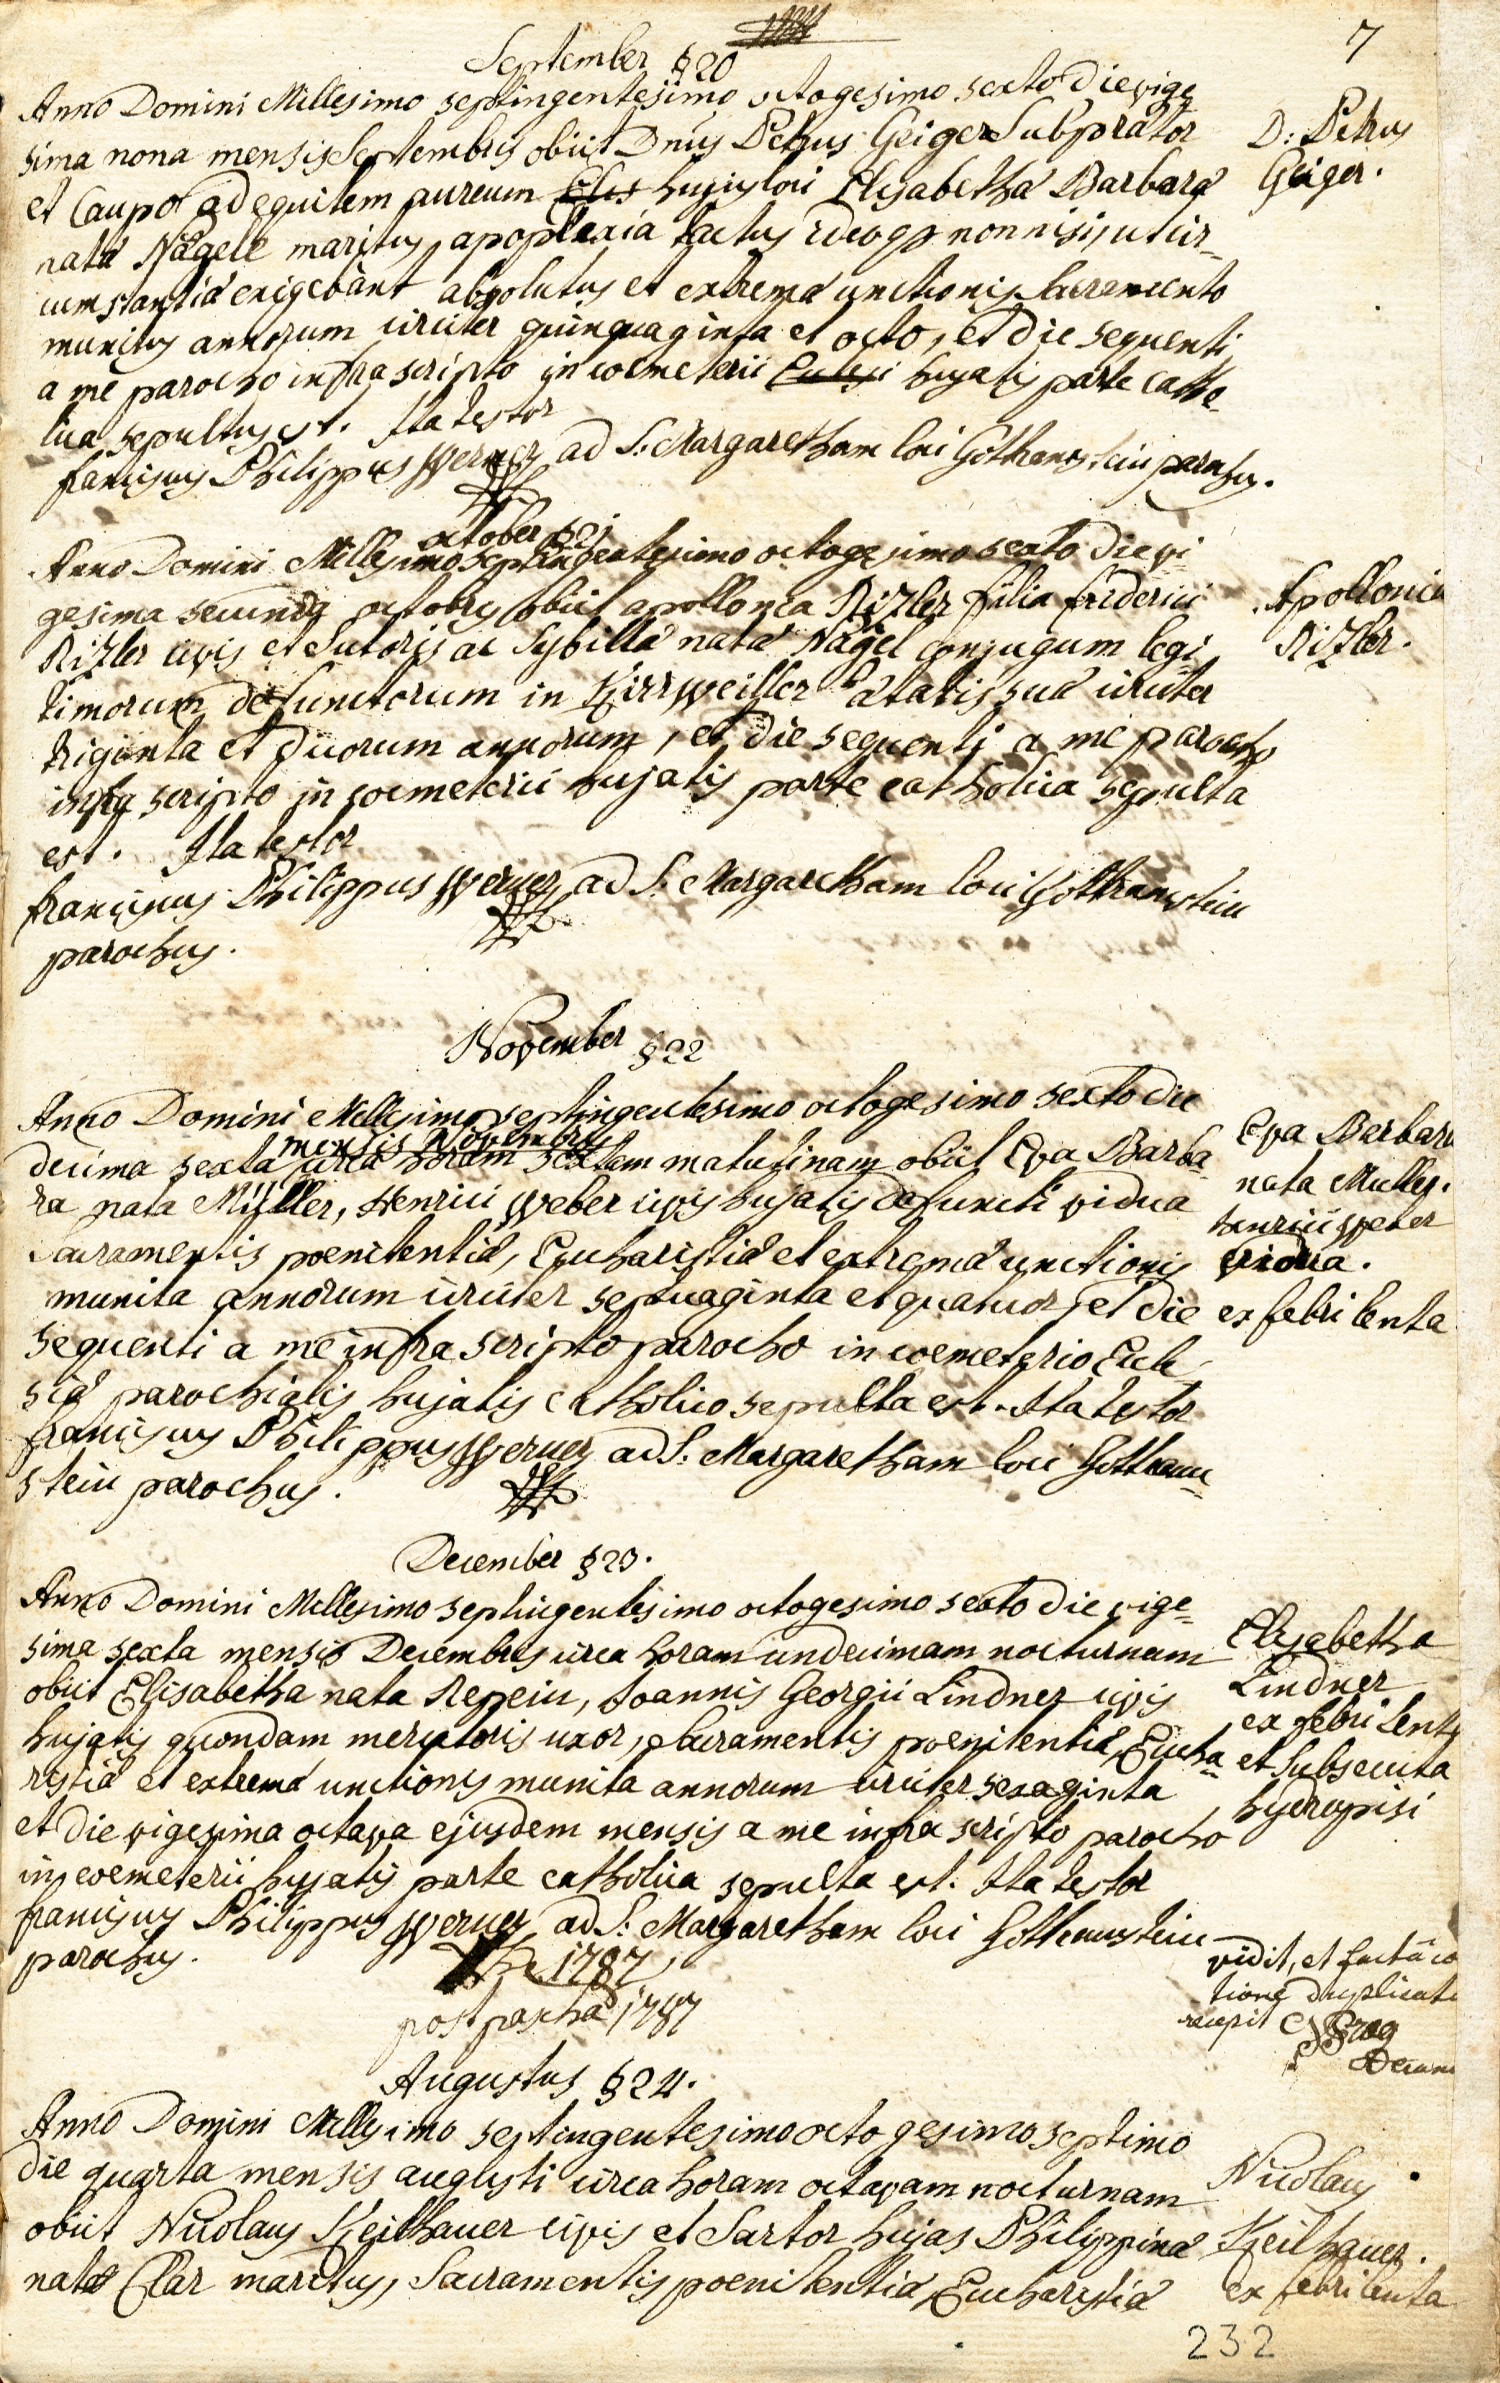 7
September § 20
Anno Domini Millesimo septingentesimo octogesimo sexto die vige
sima nona mensis Septembris obiit Dnus Petrus Geiger Subprætor
et Caupo ad equitem aureum hujus loci Elisabethæ Barbaræ
natæ Nägele maritus, apoplexia tactus ideoqe non nisi, ut cir=
cumstantiæ exigebant absolutus et extremæ unctionis Sacramento
munitus annorum circiter quinquaginta et octo, et die sequenti
a me parocho infra scripto in coemeterii hujatis parte catho=
lica sepultus est. Ita testor
Franciscus Philippus Werner ad S: Margaretham loci Gothramstein parochus.
D: Petrus
Geiger.
October § 21
Anno Domini Millesimo septingentesimo octogesimo sexto die vi=
gesima secunda octobris obiit apollonia Rizler filia Friderici
Rizler civis et Sutoris ac Sybillæ natæ Nägel conjugum legi=
timorum defunctorum in Kirrweiller ætatis suæ circiter
triginta et duorum annorum, et die sequenti a me parocho
infra scripto in coemeterii hujatis parte catholica sepulta
est. Ita testor
Franciscus Philippus Werner ad S: Margaretham loci Gothramstein
parochus.
Apollonia
Rizler.
November § 22
Anno Domini Millesimo septingentesimo octogesimo sexto die
mensis Novembris
decima sexta circa horam sextam matutinam obiit Eva Barba=
ra nata Müller, Henrici Weber civis hujatis defuncti vidua
Sacramentis poenitentiæ, Eucharistiæ et extremæ unctionis
munita annorum circiter septuaginta et quatuor, et die
sequenti a me infra scripto parocho in coemeterio Eccle=
siæ parochialis hujatis catholico sepulta est. Ita testor
Franciscus Philippus Werner ad S: Margaretham loci Gothram=
stein parochus.
Eva Barbara
nata Muller.
henrici weber
vidua.
ex febri lenta
December § 23.
Anno Domini Millesimo septingentesimo octogesimo sexto die vige=
sima sexta mensis Decembris circa horam undecimam nocturnam
obiit Elisabetha nata Repein, Joannis Georgii Lindner civis
hujatis quondam mercatoris uxor, Sacramentis poenitentiæ, Eucha=
ristiæ et extremæ unctionis munita annorum circiter sexaginta
et die vigesima octava ejusdem mensis a me infra scripto parocho
in coemeterii hujatis parte catholica sepulta est. Ita testor
Franciscus Philippus Werner ad S: Margaretham loci Gothramstein
parochus.
Elisabetha
Lindner
ex febri lenta
et subsecuta
hydropisi
vidit, et factâ
duplicat
recepit
1787
post pascha 1787
Augustus § 24.
Anno Domini Millesimo septingentesimo octogesimo septimo
die quarta mensis augusti circa horam octavam nocturnam
obiit Nicolaus Keilhauer civis et Sartor hujas Philippinæ
natæ Clar maritus, Sacramentis poenitentiæ, Eucharistiæ
Nicolaus
Keilhauer.
ex febri lenta
232